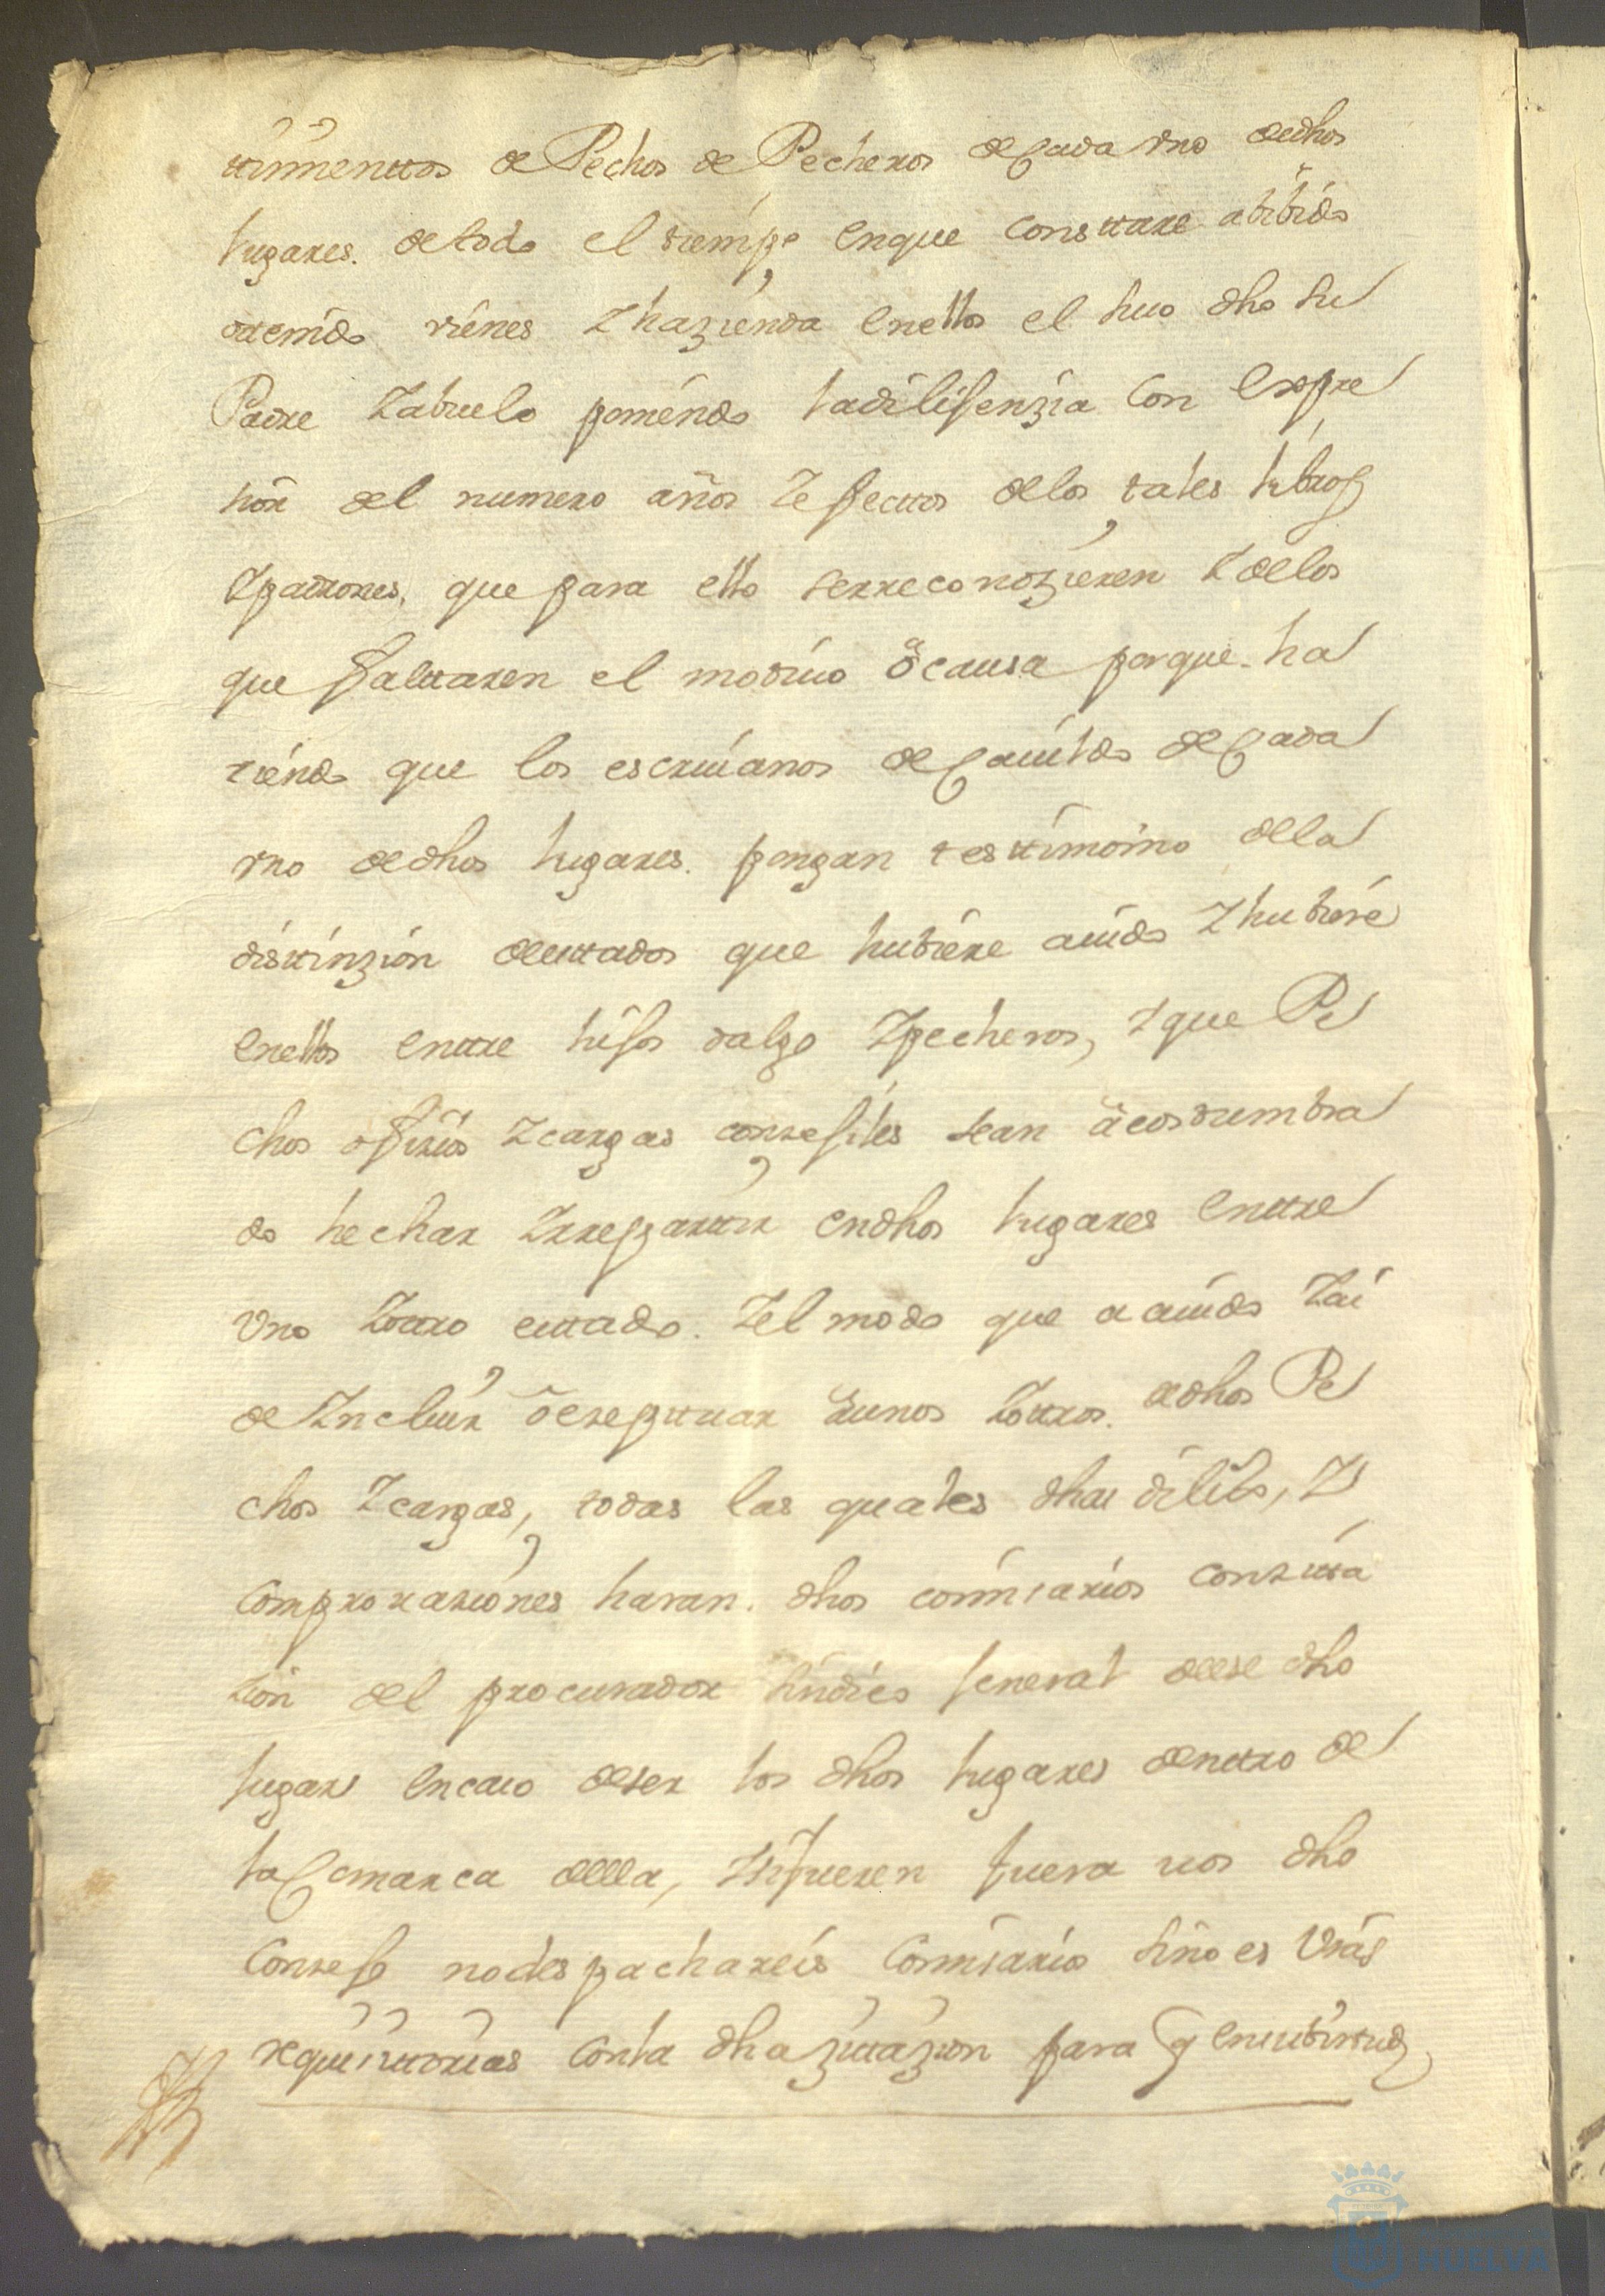 timienttos de Pechos de Pecheros de Cada vno dedhos
lugares. detodo el tiempo enque Consttare abibido
ottenido vienes Y hazienda enellos el suo dho su
Padre Yabuelo poniendo ladilisenzia Con Expre
sion del numero años Y efecttos delos tales libros
Ypadrones, que para ello serreconozieren Y delos
que faltaren el motiuo ò causa porque ha
ziendo que los escriuanos de Cauildo de Cada
vno dedhos lugares. pongan testtimonio della
disttinzion deesttados que hubiere auido Y hubiere
enellos enttre hisos dalgo Ypecheros, Y que Pe
chos ofizios Y cargas consesiles sean acostumbra
do hechar Yrreparttir endhos lugares enttre
Vno Yottro esttado. Yel modo que a auido Yai
de Yncluir ò eseptuar Aunos Yottros. dedhos Pe
chos Y cargas, todas las quales dhas dilixs, Y
Comprovaziones haran. dhos comisarios Conzitta
zion del procurador sindico seneral deese dho
lugar encaso deser los dhos lugares denttro de
la Comarca della, Ysifueren fuera uos dho
Conseso nodespachareis Comisario sino es Vras
requisittorias Conla dha zittazion para q enuubirtud,
HUELVA